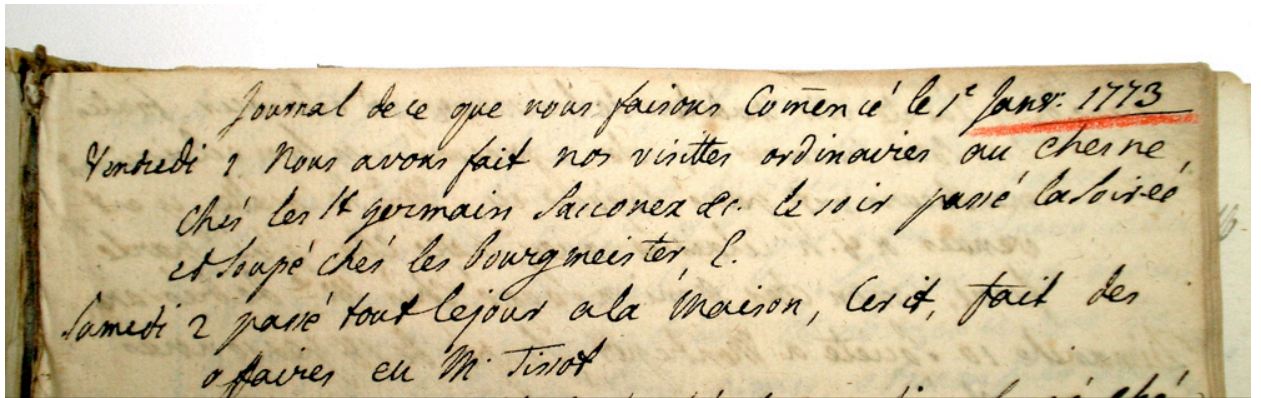 Journal de ce que nous faisons Com̄encé le 1.e Janvr. 1773
Vendredi 1 Nous avons fait nos visittes ordinaires au chesne,
chés les St germain Sacconex &c. le soir passé la Soireé
et Soupé chés les Bourgmeister
Samedi 2 passé tout le jour a la Maison, Ecrit, fait des
affaires eu Mr Tissot